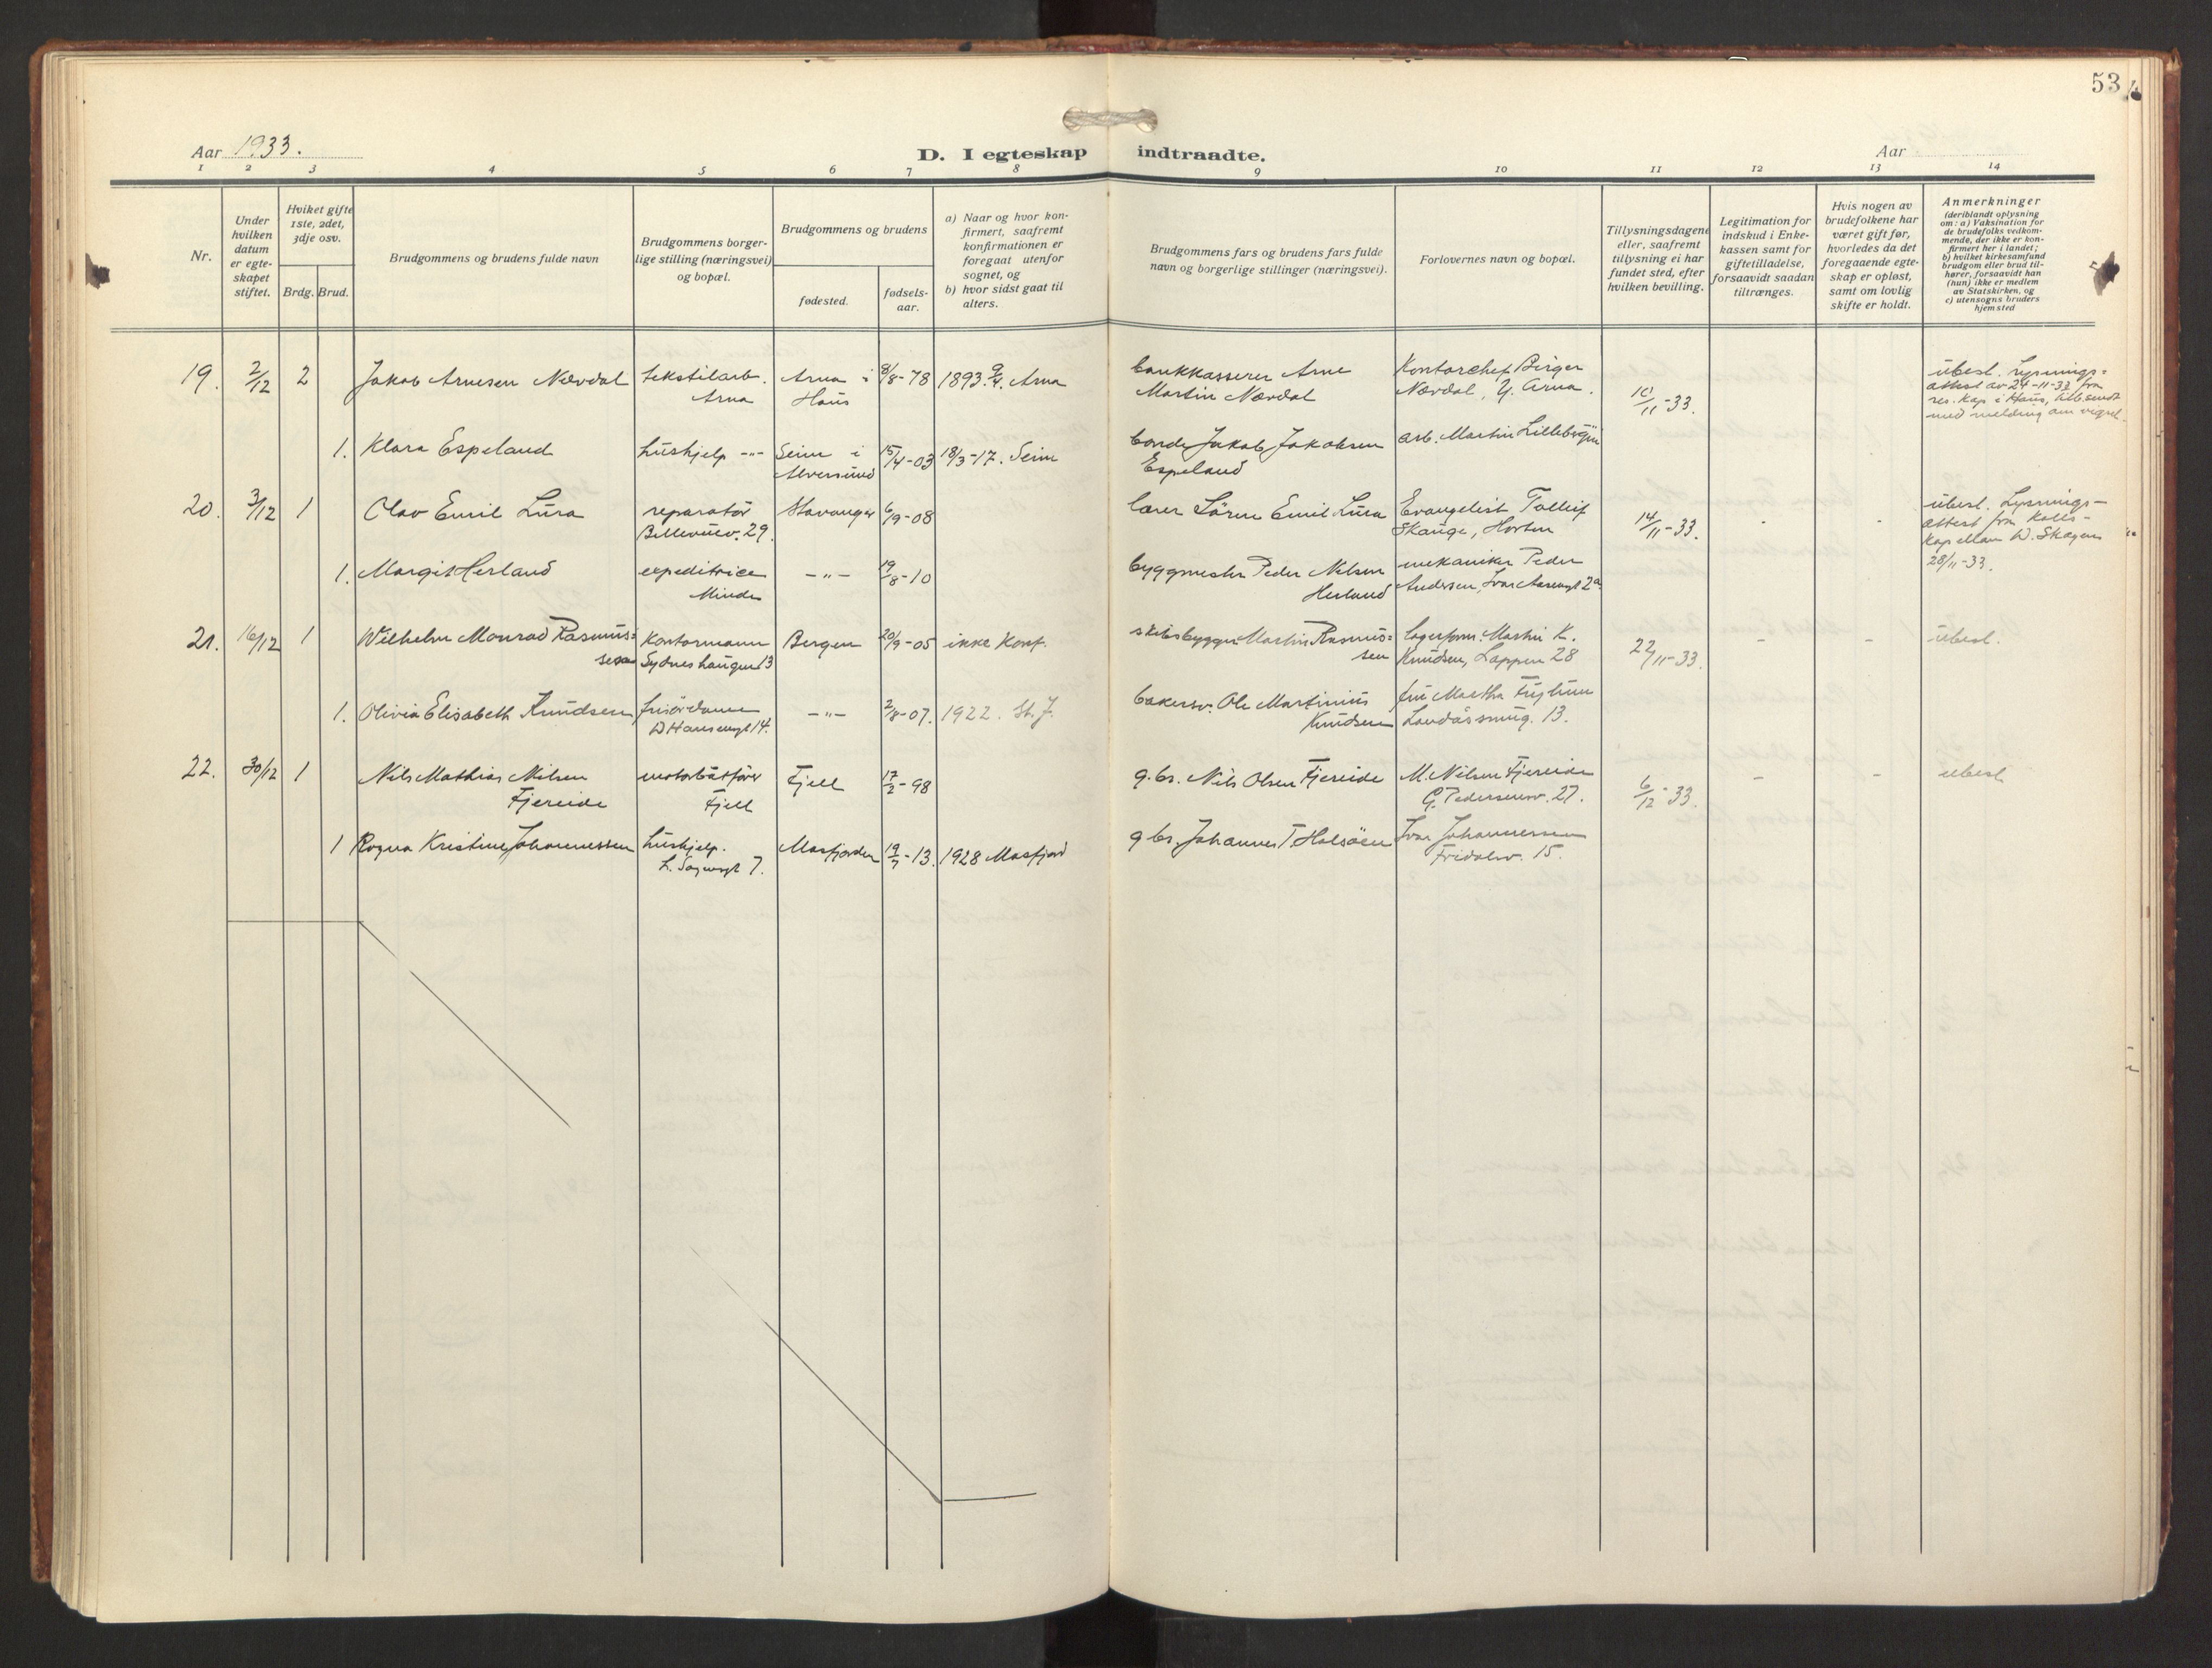 53
Aar 1933.
D. I egteskap indtraadte.
Aar
1 2 3 4 5 6 7 8 9 10 11 12 13 14
Nr.
Under
hvilken
datum
er egte-
skapet
stiftet.
Hviket gifte
1ste, 2det,
3dje osv.
Brdg. Brud.
Brudgommens og brudens fulde navn
Brudgommens borger-
lige stilling (næringsvei)
og bopæl.
Brudgommens og brudens
fødested.
fødsels-
aar.
a) Naar og hvor kon-
firmert, saafremt
konfirmationen er
foregaat utenfor
sognet, og
b) hvor sidst gaat til
alters.
Brudgommens fars og brudens fars fulde
navn og borgerlige stillinger (næringsvei).
Forlovernes navn og bopæl.
Tillysningsdagene
eller, saafremt
tillysning ei har
fundet sted, efter
hvilken bevilling.
Legitimation for
indskud i Enke-
kassen samt for
giftetilladelse,
forsaavidt saadan
tiltrænges.
Hvis nogen av
brudefolkene har
været gift før,
hvorledes da det
foregaaende egte-
skap er opløst,
samt om lovlig
skifte er holdt.
Anmerkninger
(deriblandt oplysning
om: a) Vaksination for
de brudefolks vedkom-
mende, der ikke er kon-
firmert her i landet;
b) hvilket kirkesamfund
brudgom eller brud til-
hører, forsaavidt han
(hun) ikke er medlem
av Statskirken, og
c) utensogns bruders
hjemsted
19. 2/12 2 Jakob Arnesen Nævdal
tekstilarb.
Arna
Arna i
Haus
8/8-78
1893. 9/4. Arna
bankkasserer Arne
Martin Nævdal
Kontorchef Birger
Nævdal, Y. Arna.
10/11-33.
ubesl. Lysnings=
attest av 24-11-33 fra
res. kap i Haus,
med melding om vigsel
1. Klara Espeland
hushjelp -"-
Seim i
Alversund
15/4-03
18/3-17. Seim
bonde Jakob Jakobsen
Espeland
arb. Martin Lillebergen
20. 3/12 1 Olav Emil Lura
reparatør
Bellevuev. 29.
Stavanger
6/9-08
lærer Sören Emil Lura
Evangelist Tolleif
Skauge, Horten
14/11-33. - -
ubesl. Lysnings-
attest fra Kalls-
kapellan W. Skagen
28/11-33.
1. Margit Herland
expeditrice
Minde
-"-
19/8-10
byggmester Peder Nilsen
Herland
mekaniker Peder
Andersen, Ivar Aasensgt 2a.
21. 16/12 1 Wilhelm Monrad Rasmus=
sen
Kontormann
Sydneshaugen 13
Bergen
20/9-05
ikke Konf.
skibsbygger Martin Rasmus=
sen
Lagerform. Martin K.
Knudsen, Lappen 28
22/11-33. - -
ubesl.
1. Olivia Elisabeth Knudsen
frisördame
D Hansensgt 14.
-"-
2/8-07.
1922. St. J.
bakersv. Ole Martinius
Knudsen
fru Martha
Landåssmug. 13.
22. 30/12 1 Nils Mathias Nilsen
Fjereide
motorbåtförer
Fjell
Fjell
17/2-98
g.br. Nils Olsen Fjereide
M. Nilsen Fjereide
G. Pedersensv. 27.
6/12-33. - -
ubesl
1 Ragna Kristine Johannessen
hushjelp.
L. Sagensgt 7.
Masfjorden
19/7-13.
1928 Masfjord
g br. Johannes T. Holsöen
Ivar Johannessen
Fridalsv. 15.